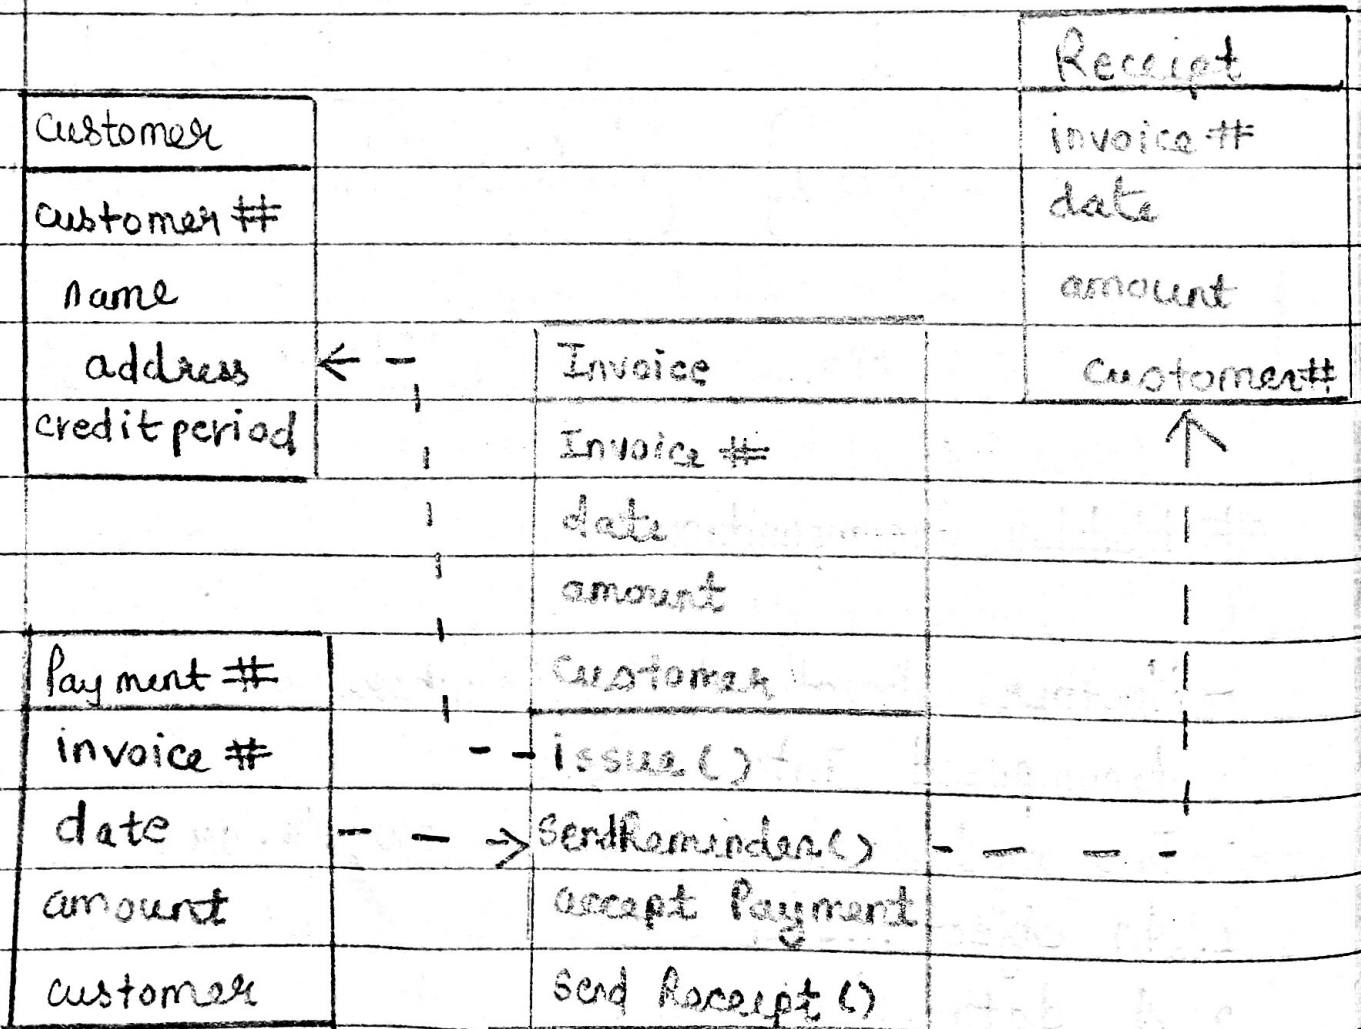 Customer
customer #
name
address
creditperiod
Receipt
invoice #
date
amount
Customer#
Invoice
Invoice #
date
amount
Customer
issue()
sendReminder()
accept Payment
Send Receipt ()
Payment #
invoice #
date
amount
customer